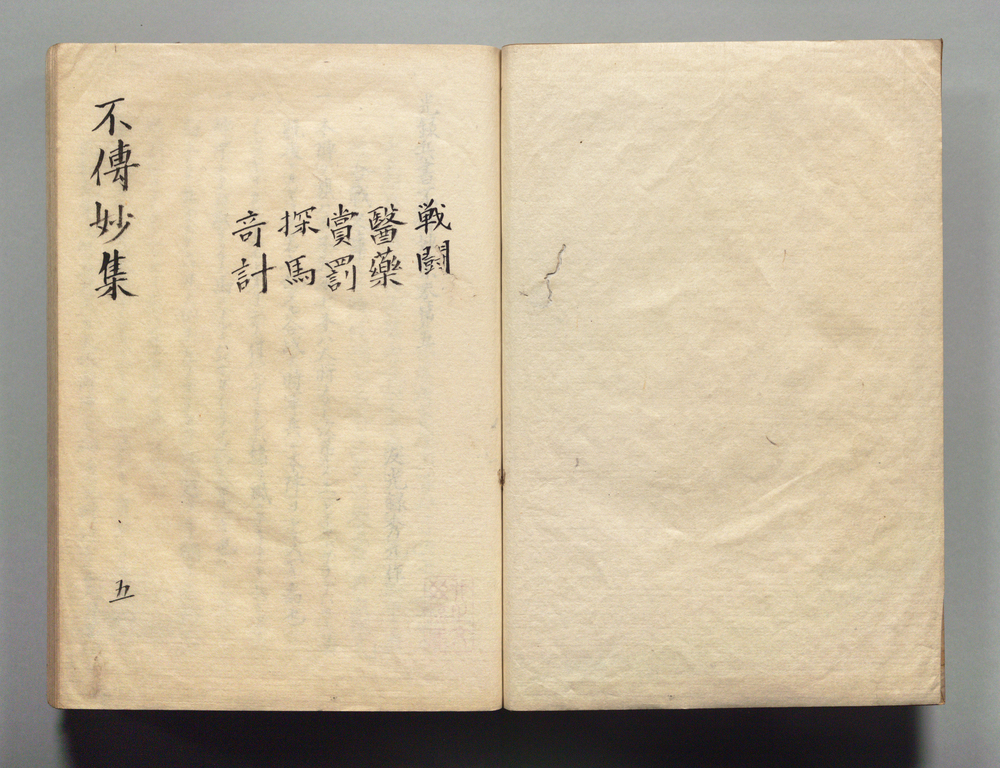 戦闘
醫藥
賞罰
探馬
奇計
不傳妙集
五